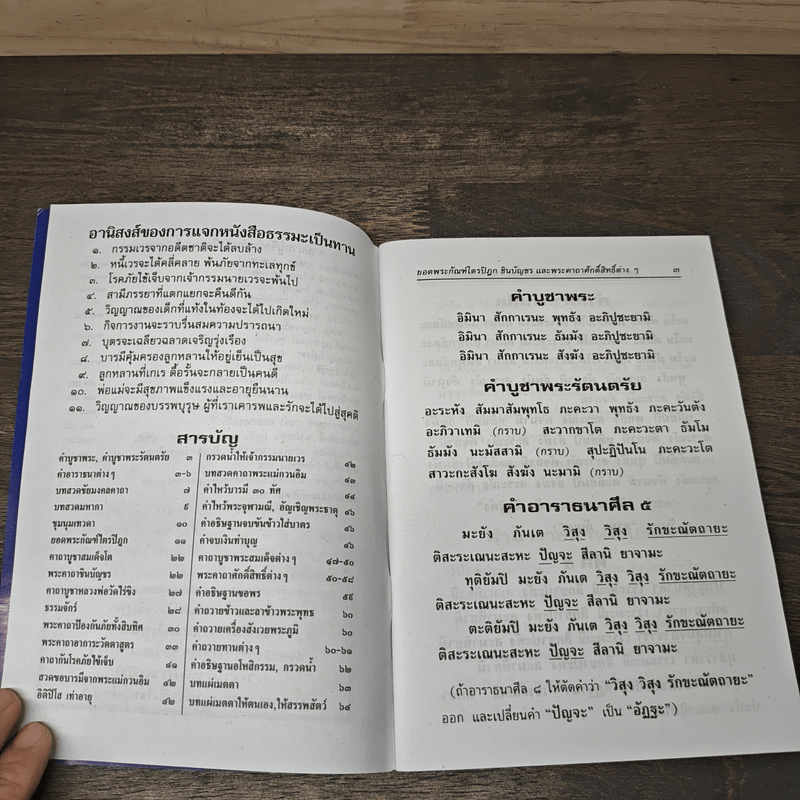 อานิสงส์ของการแจกหนังสือธรรมะเป็นทาน
๑. กรรมเวรจากอดีตชาติจะได้ลบล้าง
๒. หนี้เวรจะได้คลี่คลาย พ้นภัยจากทะเลทุกข์
๓. โรคภัยไข้เจ็บจากเจ้ากรรมนายเวรจะพ้นไป
๔. สามีภรรยาที่แตกแยกจะคืนดีกัน
๕. วิญญาณของเด็กที่แท้งในท้องจะได้ไปเกิดใหม่
๖. กิจการงานจะราบรื่นสมความปรารถนา
๗. บุตรจะเฉลียวฉลาดเจริญรุ่งเรือง
๘. บารมีคุ้มครองลูกหลานให้อยู่เย็นเป็นสุข
๙. ลูกหลานที่เกเร ดื้อรั้นจะกลายเป็นคนดี
๑๐. พ่อแม่จะมีสุขภาพแข็งแรงและอายุยืนนาน
๑๑. วิญญาณของบรรพบุรุษ ผู้ที่เราเคารพและรักจะได้ไปสู่สุคติ
สารบัญ
คำบูชาพระ, คำบูชาพระรัตนตรัย ๓
คำอาราธนาต่าง ๆ ๓-๖
บทสวดชัยมงคลคาถา ๗
บทสวดมหากา ๙
ชุมนุมเทวดา ๑๐
ยอดพระกัณฑ์ไตรปิฎก ๑๑
คาถาบูชาสมเด็จโต ๒๒
พระคาถาชินบัญชร ๒๒
คาถาบูชาหลวงพ่อวัดไร่ขิง ๒๗
ธรรมจักร์ ๒๘
พระคาถาป้องกันภัยทั้งสิบทิศ ๓๐
พระคาถาอาการะวัตตาสูตร ๓๓
คาถากันโรคภัยไข้เจ็บ ๔๑
สวดขอบารมีจากพระแม่กวนอิม ๔๒
อิติปิโส เท่าอายุ ๔๒
กรวดน้ำให้เจ้ากรรมนายเวร ๔๒
บทสวดคาถาพระแม่กวนอิม ๔๓
คำไหว้บารมี ๓๐ ทัศ ๔๔
คำไหว้พระจุฬามณี, อัญเชิญพระธาตุ ๔๖
คำอธิษฐานจบขันข้าวใส่บาตร ๔๖
คำจบเงินทำบุญ ๔๖
คาถาบูชาพระสมเด็จต่าง ๆ ๔๗-๕๐
พระคาถาศักดิ์สิทธิ์ต่าง ๆ ๕๐-๕๘
คำอธิษฐานขอพร ๕๙
คำถวายข้าวและลาข้าวพระพุทธ ๖๐
คำถวายเครื่องสังเวยพระภูมิ ๖๐
คำถวายทานต่าง ๆ ๖๐-๖๑
คำอธิษฐานอโหสิกรรม, กรวดน้ำ ๖๒
บทแผ่เมตตา ๖๓
บทแผ่เมตตาให้ตนเอง,ให้สรรพสัตว์ ๖๔
ยอดพระกัณฑ์ไตรปิฎก ชินบัญชร และพระคาถาศักดิ์สิทธิ์ต่าง ๆ ๓
คำบูชาพระ
อิมินา สักกาเรนะ พุทธัง อะภิปูชะยามิ
อิมินา สักกาเรนะ ธัมมัง อะภิปูชะยามิ
อิมินา สักกาเรนะ สังฆัง อะภิปูชะยามิ
คำบูชาพระรัตนตรัย
อะระหัง สัมมาสัมพุทโธ ภะคะวา พุทธัง ภะคะวันตัง
อะภิวาเทมิ (กราบ) สะวากขาโต ภะคะวะตา ธัมโม
ธัมมัง นะมัสสามิ (กราบ) สุปะฏิปันโน ภะคะวะโต
สาวะกะสังโฆ สังฆัง นะมามิ (กราบ)
คำอาราธนาศีล ๕
มะยัง ภันเต วิสุง วิสุง รักขะณัตถายะ
ติสะระเณนะสะหะ ปัญจะ สีลานิ ยาจามะ
ทุติยัมปิ มะยัง ภันเต วิสุง วิสุง รักขะณัตถายะ
ติสะระเณนะสะหะ ปัญจะ สีลานิ ยาจามะ
ตะติยัมปิ มะยัง ภันเต วิสุง วิสุง รักขะณัตถายะ
ติสะระเณนะสะหะ ปัญจะ สีลานิ ยาจามะ
(ถ้าอาราธนาศีล ๘ ให้ตัดคำว่า “วิสุง วิสุง รักขะณัตถายะ”
ออก และเปลี่ยนคำ “ปัญจะ” เป็น “อัฏฐะ”)